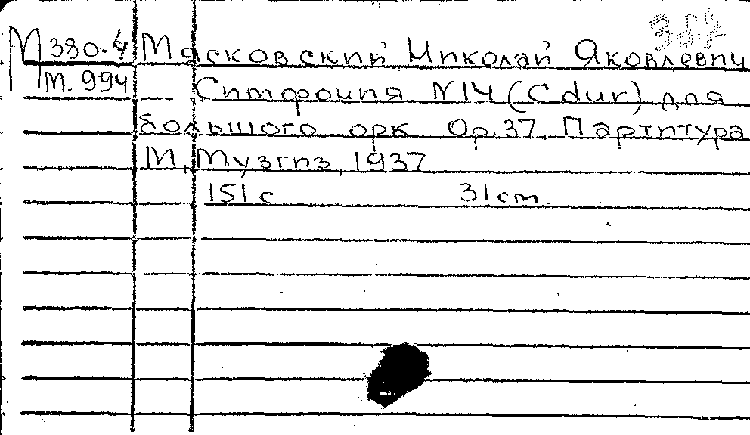 М 380-4 Мясковский Николай Яковлевич
м. 994 Симфония N14 (C dur) для
большого орк Op.37. Партитура
М, Музгиз, 1937
151 с 31 cm